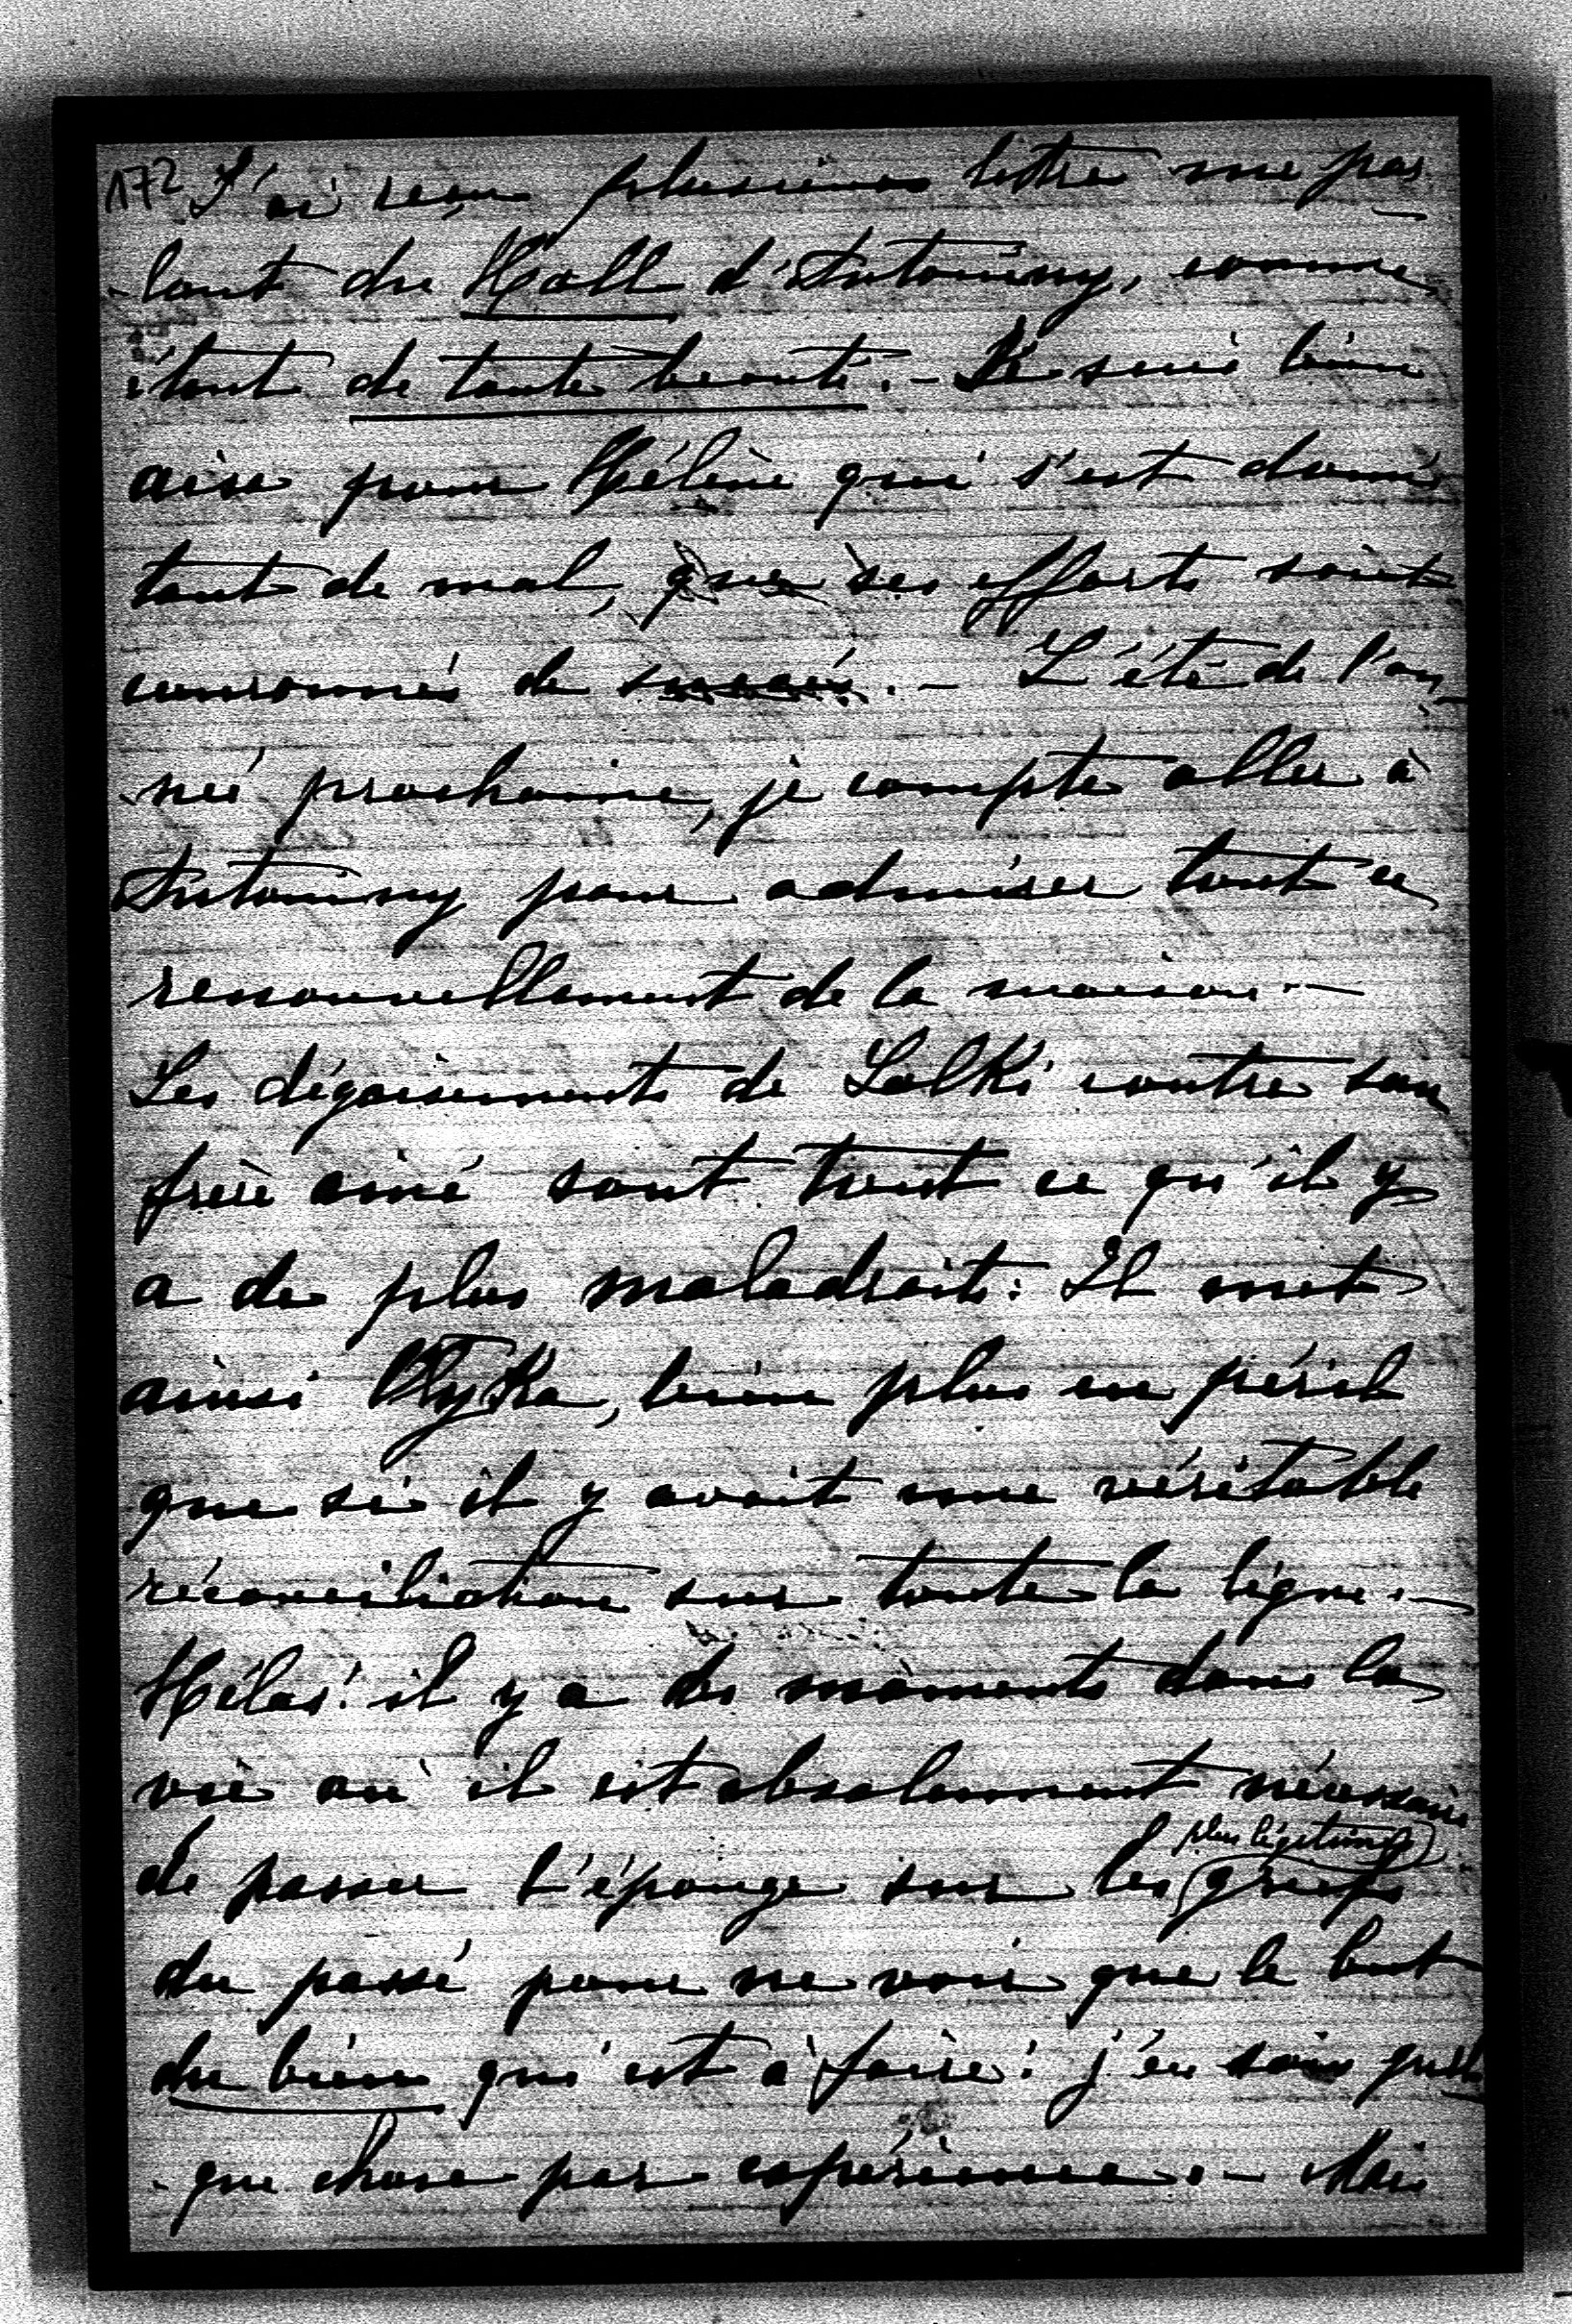 172 J'ai reçu plusieurs lettres me par
-lant du Hall d'Antoniny, comme
étant de toute beauté. - Je suis bien
aise pour Hélène qui s'est donné
tant de mal, que ses efforts soient
couronnés de succès. - L'été de l'an-
-née prochaine, je compte aller à
Antoniny pour admirer tout ce
renouvellement de la maison. -
Les dégoisements de Lolki contre son
frère ainé sont tout ce qu'il y
a de plus maladroit: Il met
ainsi Olyka, bien plus en péril
que si il y avait une véritable
réconciliation sur toute la ligne. -
Hélas! il y a des moments dans la
vie où il est absolument nécessaire
plus légitimes
de passer l'éponge sur les griefs
du passé pour ne voir que le but
du bien qui est à faire: j'en sais quel-
-que chose par expérience. - Mais